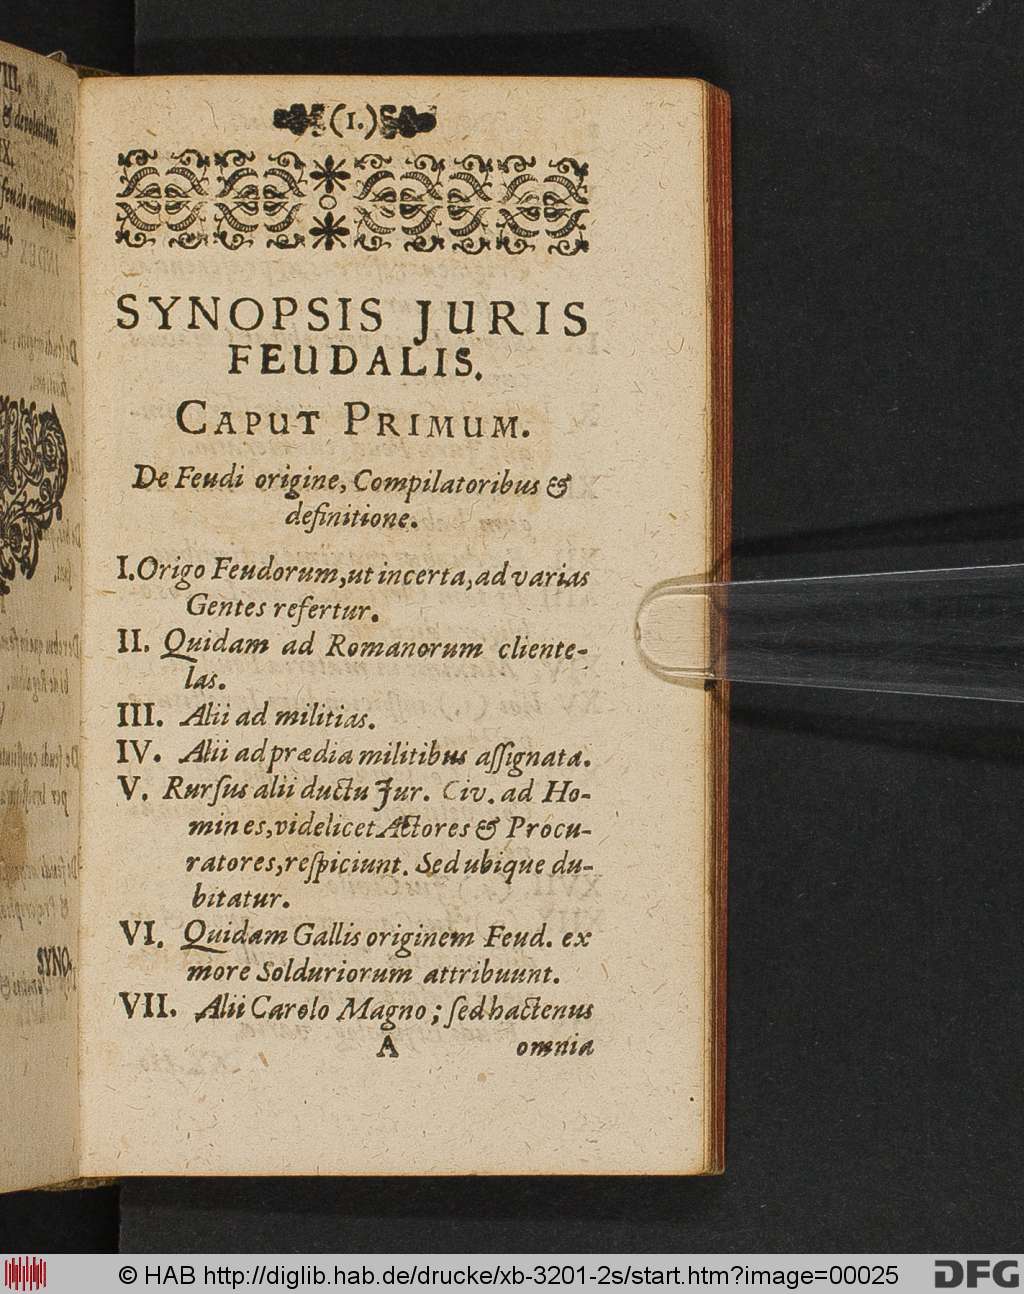 (1.)
SYNOPSIS JURIS
FEUDALIS.
CAPUT PRIMUM.
De Feudi origine, Compilatoribus &
definitione.
I. Origo Feudorum, ut incerta, ad varias
Gentes refertur.
II. Quidam ad Romanorum cliente-
las.
III. Alii ad militias.
IV. Alii ad prædia militibus aſſignata.
V. Rurſus alii ductu Jur. Civ. ad Ho-
mines, videlicet Actores & Procu-
ratores, reſpiciunt. Sed ubique du-
bitatur.
VI. Quidam Gallis originem Feud. ex
more Solduriorum attribuunt.
VII. Alii Carolo Magno; ſed hactenus
A omnia
VIII.
& devolutione
IX.
INDEX
SYNO-
© HAB http://diglib.hab.de/drucke/xb-3201-2s/start.htm?image=00025
DFG